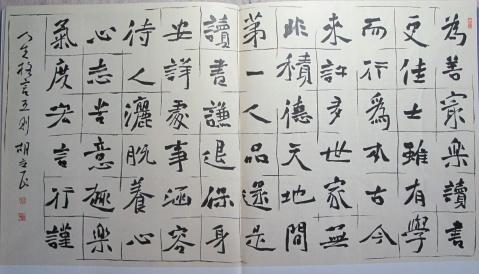 為善最樂讀書
更佳士雖有學
而行為本古今
來許多世家無
非積德天地間
第一人品還是
讀書謙退保身
安詳處事涵容
待人灑脫養心
心志苦意趣樂
氣度宏言行謹
格言五則 胡